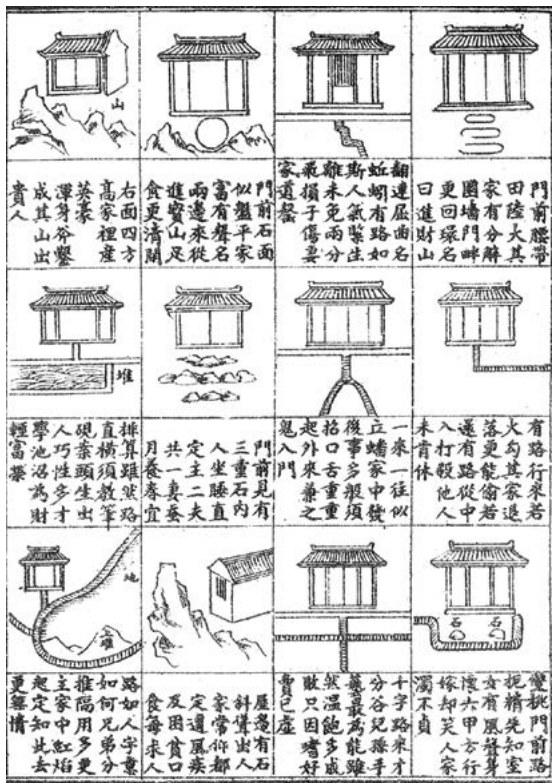 門前腰帶
田陸大其
家有分解
圍墻門畔
更回環名
曰進財山
翻連屈曲名
蚯蚓有路如
斯人氣緊生
離未免兩分
飛損子傷妻
家道罄
門前石面
似盤平家
富有聲名
兩邊來從
進寶山足
食更清閒
山
右面四方
高家裡產
英豪
渾身斧鑿
成其山出
貴人
有路行來若
火勾其家退
落更能偷若
還有路從中
入打殺他人
未肯休
一來一往似
立幡家中發
後事多般須
招口舌重重
起外來兼之
鬼入門
門前見有
三重石內
人坐睡直
定主二夫
共一妻蚕
月養春宜
堆
排算雖然路
直橫須教筆
硯案頭生出
人巧性多才
學池沼為財
輕富榮
石 石
門前路
扼精先知室
女有風聲身
懷六甲方行
嫁却笑人家
濁不貞
十字路來才
分谷兒孫手
藝最為能雖
然溫飽多成
敗只因嗜好
賣已虛
屋邊有石
斜聳出人
家常仰都
定遭風疾
及困貧口
食每求人
地
土堆
路如人字意
如何兄弟分
推隔用多更
主家中紅焰
起定知此去
更無情